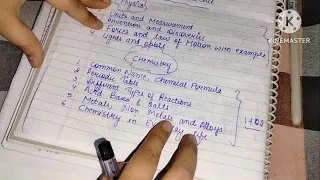 Physics
Units and Measurement
Invention and Discoveries
Forces and law of Motion with example
4 Lights and optics
KINEMASTER
Chemistry
1. Common Name, Chemical Formula
2 Periodic Table
3 Different Types of Reactions
4 Acid Bases & Salts
5 Metals, Non Metals and Alloys
6 Chemistry in Everyday life